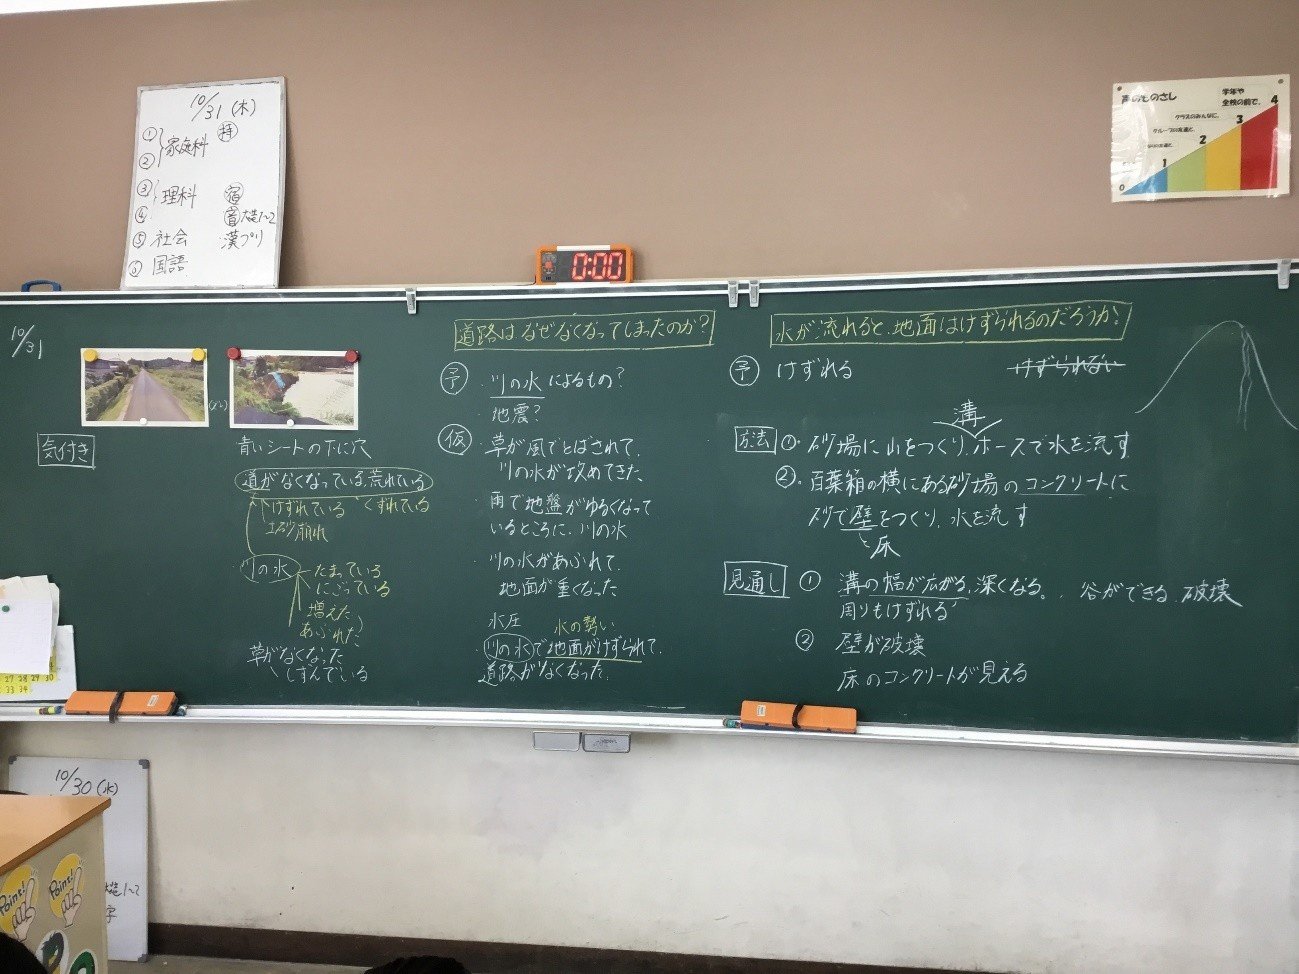 10/31(木)
① 家庭科 持
②
③ 理科 宿
④ 音 1~2
⑤ 社会 漢プリ
⑥ 国語
声のものさし
学年や
全校の前で。
クラスのみんなに。
グループの友達と。
0 1 2 3 4
0:00
10/31
気付き
青いシートの下に穴
道がなくなっている,荒れている
けずれている くずれている
土砂崩れ
川の水
たまっている
にごっている
増えた
あふれた
草がなくなった
しずんでいる
道路はなぜなくなってしまったのか?
予 ・川の水によるもの?
・地震?
仮 ・草が風でとばされて、
川の水が攻めてきた
・雨で地盤がゆるくなって
いるところに、川の水
・川の水があふれて、
地面が重くなった
水圧 水の勢い
川の水で地面がけずられて、
道路がなくなった。
水が流れると、地面はけずられるのだろうか?
予 けずれる けずられない
溝
方法 ①・砂場に山をつくり、ホースで水を流す
②・百葉箱の横にある砂場のコンクリートに
砂で壁をつくり、水を流す
と床
見通し ① 溝の幅が広がる,深くなる。・谷ができる 破壊
周りもけずれる
② 壁が破壊
床のコンクリートが見える
27 28 29 30
33 34
10/30(水)
1~2
字
Point!
Point!